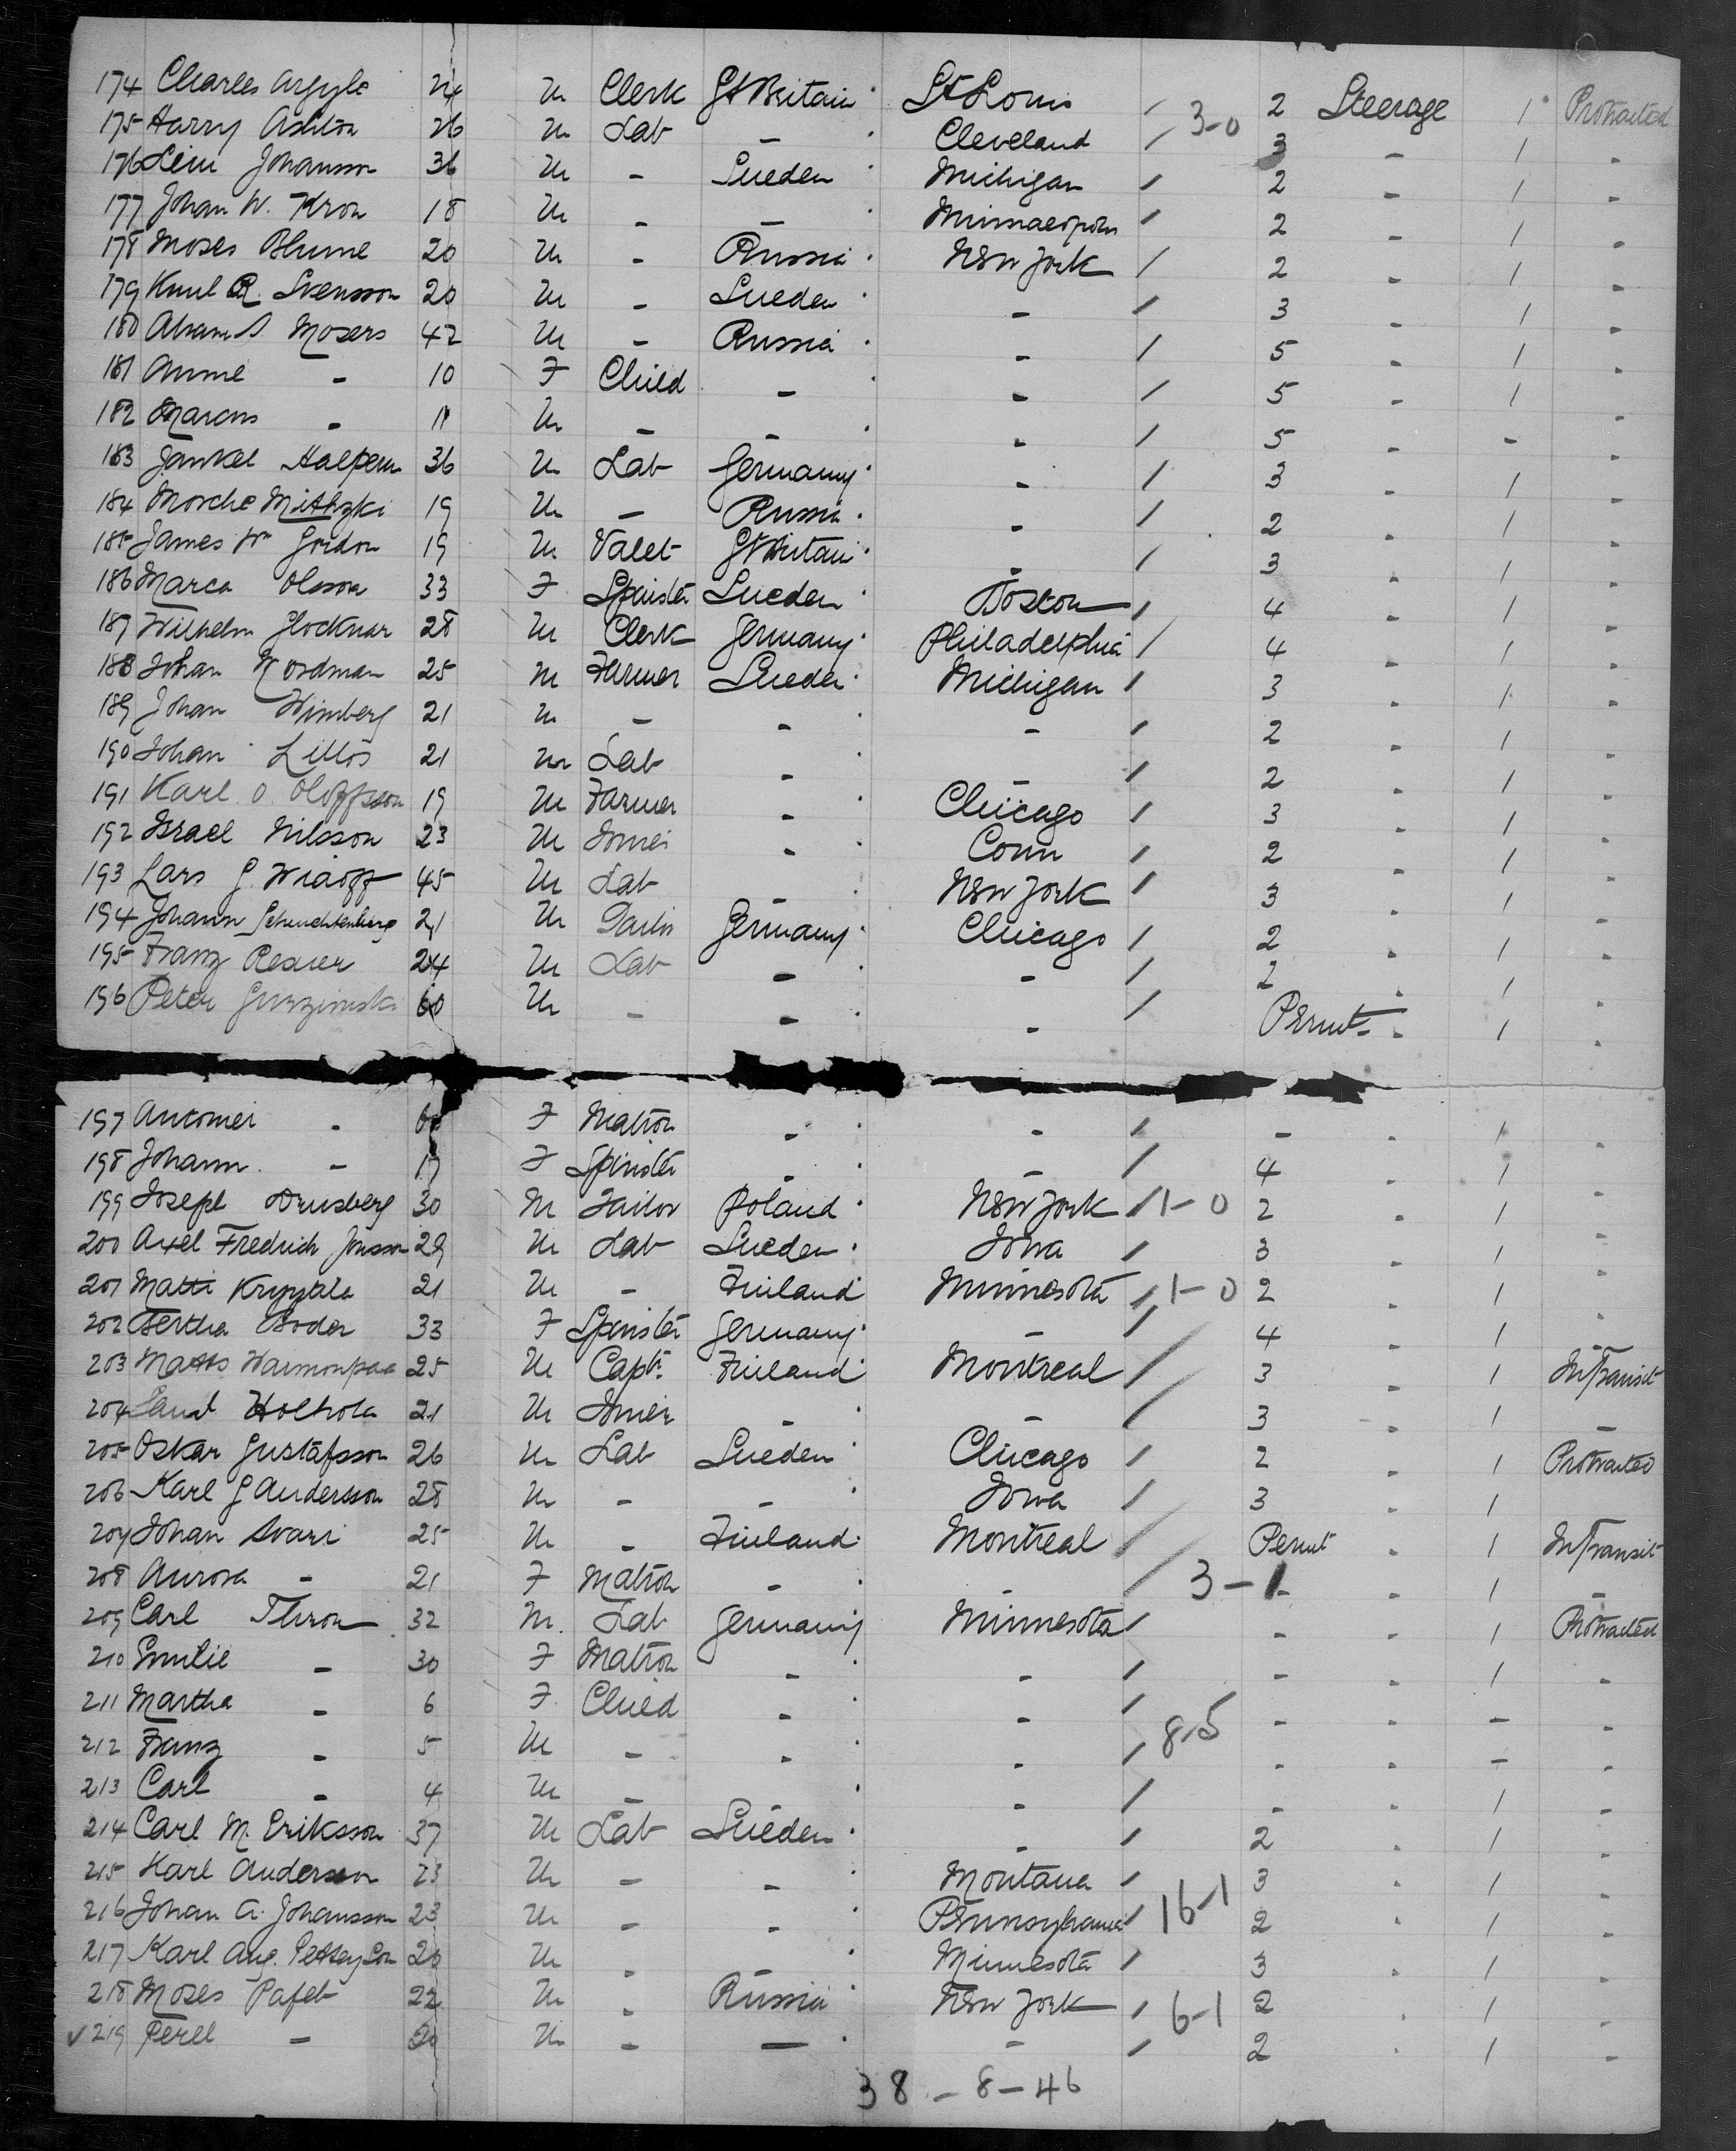 174 Charles Argyle 24 M Clerk Gt Britain St Louis / 3-0 2 Steerage 1 Protracted
175 Harry Ashton 26 M Lab - Cleveland / 3 - 1 -
176 Johansson 36 M - Sweden Michigan / 2 - 1 -
177 Johan W. Kron 18 M - - Minneapolis / 2 - 1 -
178 Moses Blume 20 M - Russia New York / 2 - 1 -
179 Knul R. Svensson 20 M - Sweden - / 3 - 1 -
180 Abram S. Mosers 42 M - Russia - / 5 - 1 -
181 Anme - 10 F Child - - / 5 - 1 -
182 Marcus - 11 M - - - / 5 - - -
183 Jankel Halpern 36 M Lab Germany - / 3 - 1 -
184 Mosche 19 M - Russia - / 2 - 1 -
185 James Wm Gordon 19 M Valet Gt Britain - / 3 - 1 -
186 Marca Olsson 33 F Spinster Sweden Boston / 4 - 1 -
187 Wilhelm Glocknar 28 M Clerk Germany Philadelphia / 4 - 1 -
188 Johan Nordman 25 M Farmer Sweden Michigan / 3 - 1 -
189 Johan Wimberg 21 M - - - / 2 - 1 -
190 Johan Lillos 21 M Lab - - / 2 - 1 -
191 Karl O. Oloffsson 19 M Farmer - Chicago / 3 - 1 -
192 Israel Nilsson 23 M - Conn / 2 - 1 -
193 Lars G. 45 M Lab - New York / 3 - 1 -
194 Johann Schuchtenberg 21 M Germany Chicago / 2 - 1 -
195 Franz 24 M Lab - - / 2 - 1 -
196 Peter 60 M - - - / Permt - 1 -
197 Antomei - F Matron - - / - - 1 -
198 Johann - 17 F Spinster - - / 4 - 1 -
199 Joseph Drusberg 30 M Tailor Poland New York / 1-0 2 - 1 -
200 Axel Fredrich Jonsson 29 M Lab Sweden Iowa / 3 - 1 -
201 Matti 21 M - Finland Minnesota / 1-0 2 - 1 -
202 Bertha Boder 33 F Spinster Germany - / 4 - 1 -
203 Matts 25 M Capt. Finland Montreal / 3 - 1 In Transit
204 21 M - - / 3 - 1 -
205 Oskar Gustafsson 26 M Lab Sweden Chicago / 2 - 1 Protracted
206 Karl G Andersson 28 M - - Iowa / 3 - 1 -
207 Johan Svari 25 M - Finland Montreal / Permt - 1 In Transit
208 Aurora - 21 F Matron - - / 3-1 - - 1 -
209 Carl Thron 32 M. Lab Germany Minnesota / - - 1 Protracted
210 Emilie - 30 F Matron - - / - - 1 -
211 Martha - 6 F Child - - / - - - -
212 Franz - 5 M - - - / 8-5 - - - -
213 Carl - 4 M - - - / - - 1 -
214 Carl M. Eriksson 37 M Lab Sweden - / 2 - 1 -
215 Karl Anderson 23 M - - Montana / 3 - 1 -
216 Johan A. Johansson 23 M - - Pennsylvania / 16-1 2 - 1 -
217 Karl Aug. 20 M - - Minnesota / 3 - 1 -
218 Moses Pafet 22 M - Russia New York / 6-1 2 - 1 -
✓ 219 Perel - 20 M - - - / 2 - 1 -
38-8-46